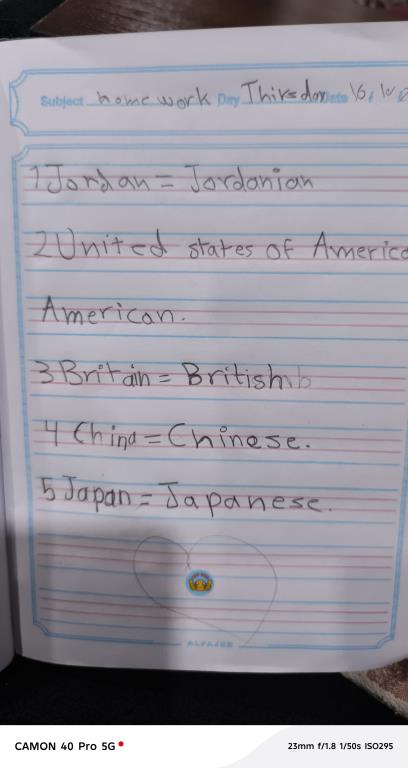 Subject home work Day Thirsday Date 16, 10
1 Jordan = Jordanian
2 United states of America
American.
3 Britain = British
4 China = Chinese.
5 Japan = Japanese.
ALFAJER
CAMON 40 Pro 5G 23mm f/1.8 1/50s ISO295